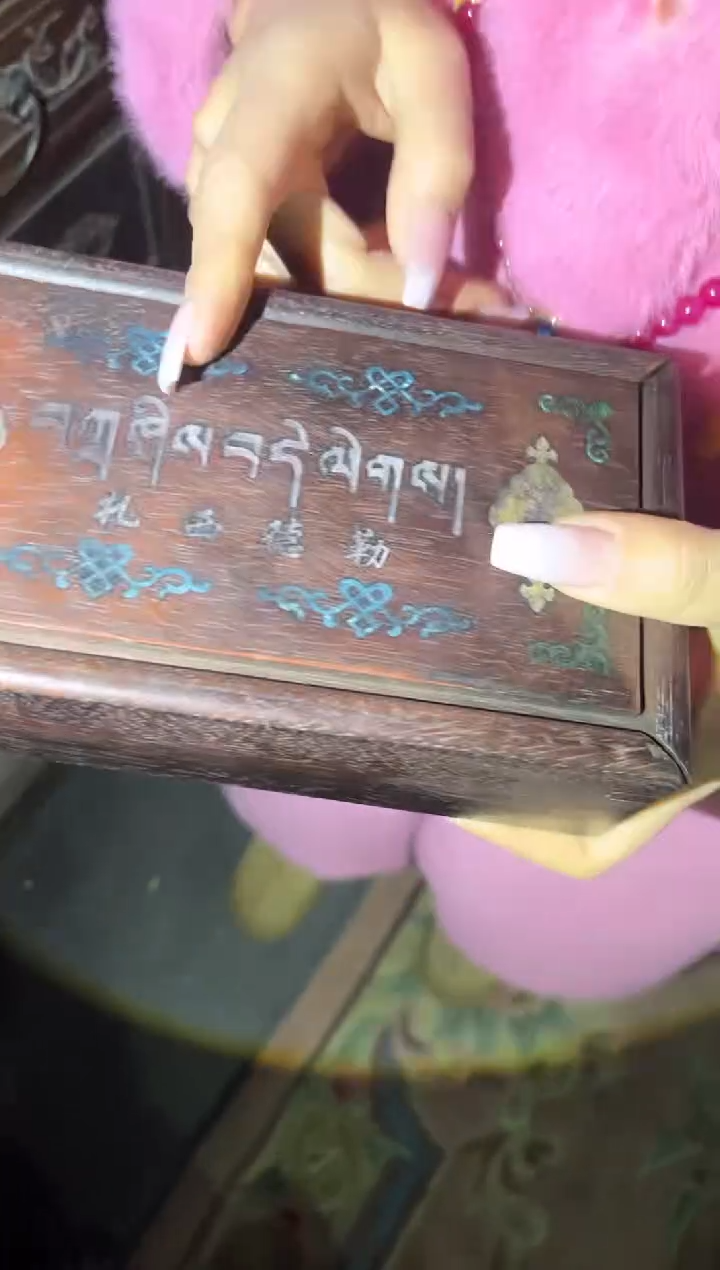 བཀྲ་ཤིས་བདེ་ལེགས།
扎西德勒